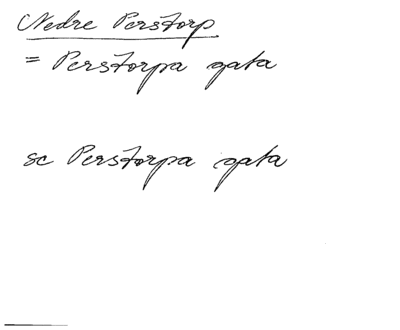 Nedre Perstorp
= Perstorpa gata
se Perstorpa gata